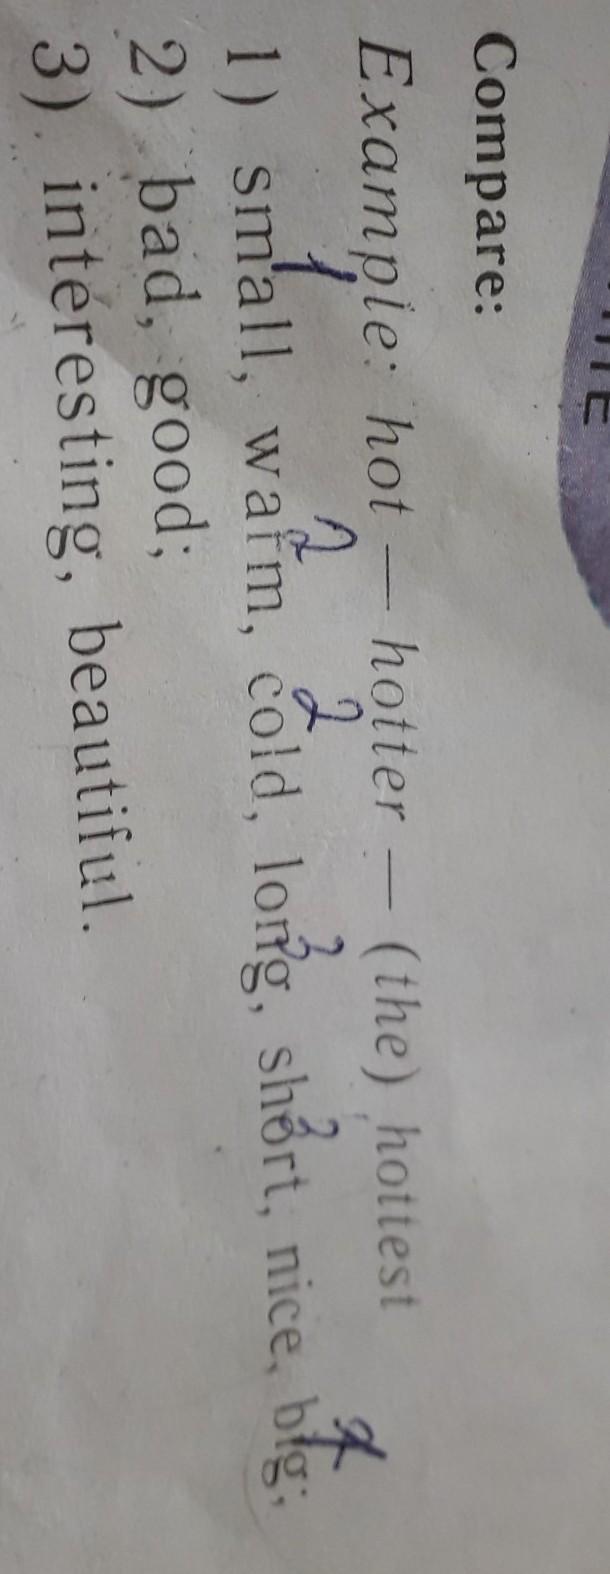 Compare:
Example: hot — hotter — (the) hottest
1) small, warm, cold, long, short, nice, big;
2) bad, good;
3) interesting, beautiful.